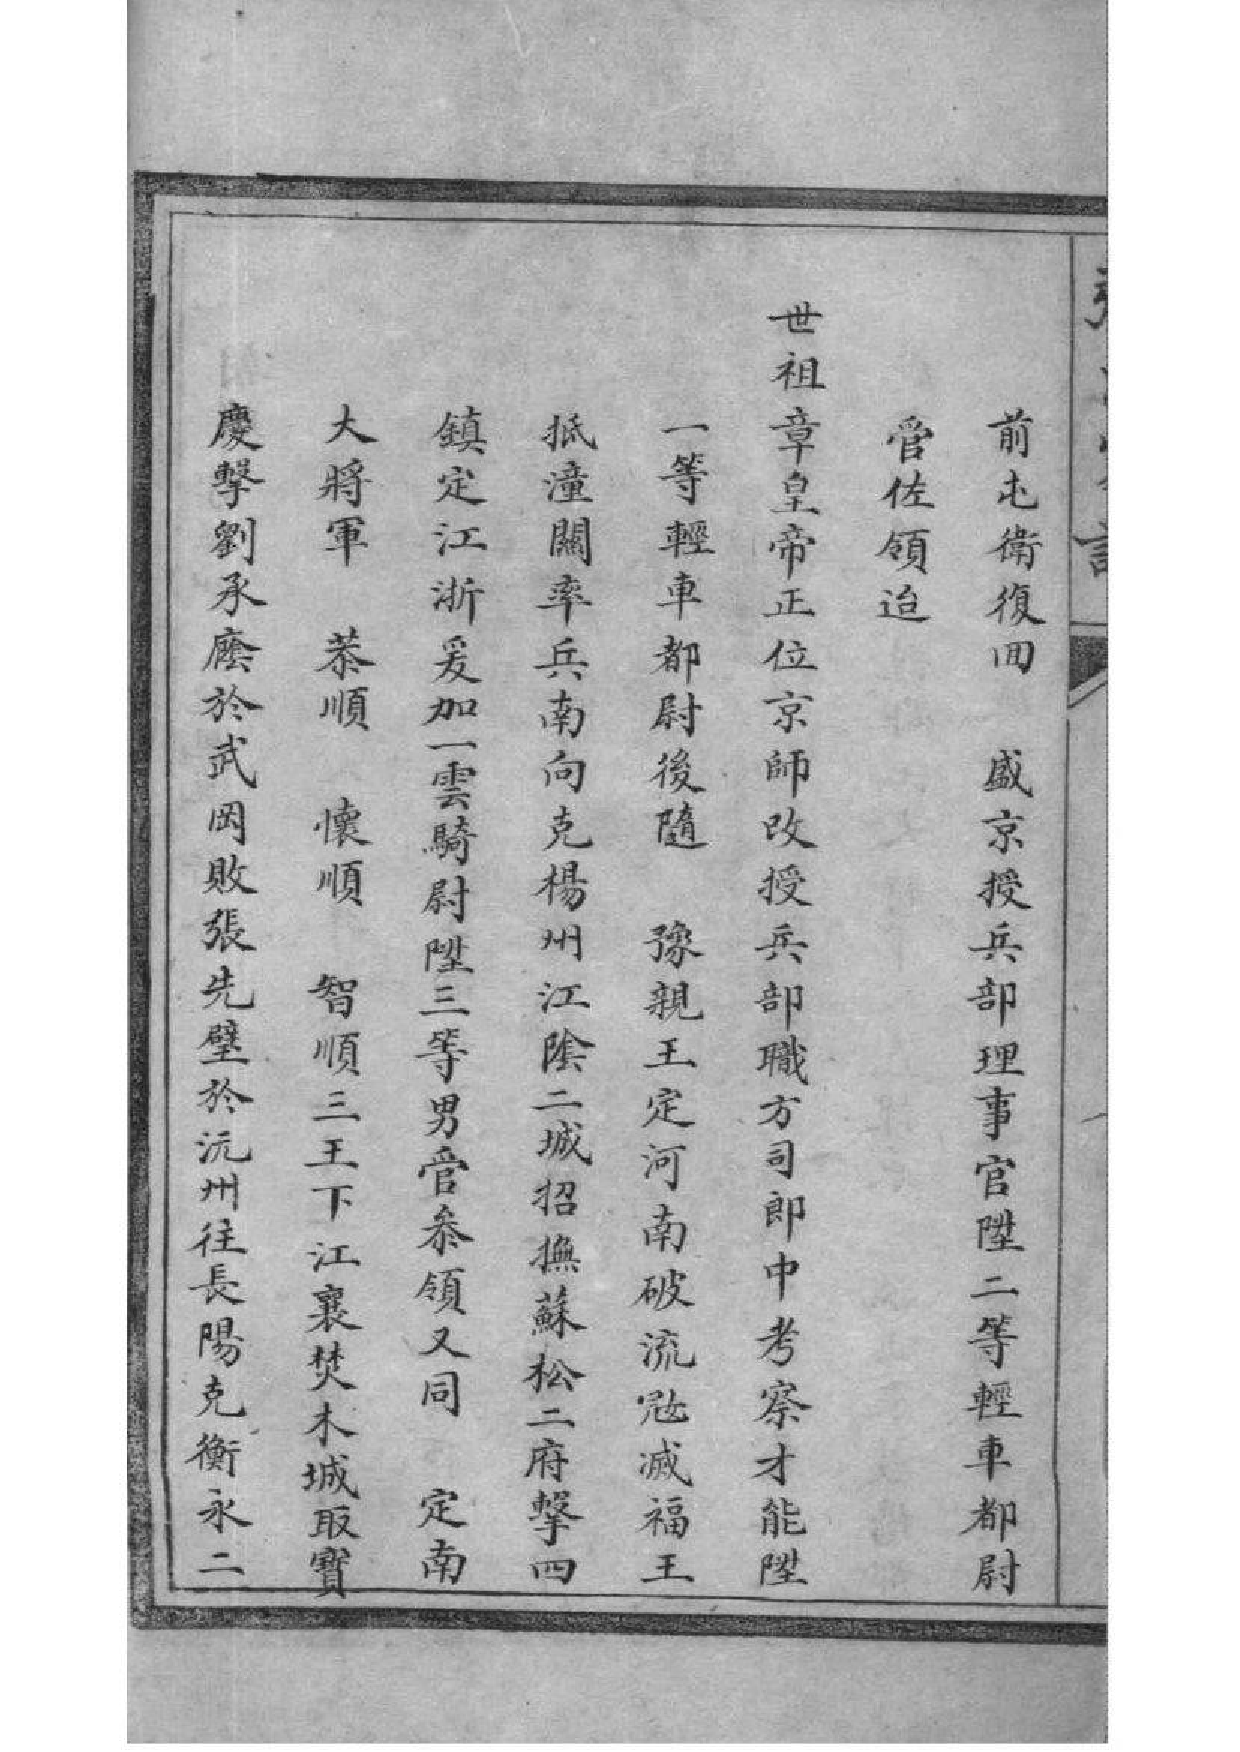 前屯衛復回　盛京授兵部理事官陞二等輕車都尉
管佐領迨
世祖章皇帝正位京師改授兵部職方司郎中考察才能陞
一等輕車都尉後隨　豫親王定河南破流寇滅福王
抵潼關率兵南向克楊州江陰二城招撫蘇松二府擊四
鎮定江浙爰加一雲騎尉陞三等男管叅領又同　定南
大將軍　恭順　懷順　智順三王下江襄焚木城取寶
慶擊劉承廕於武岡敗張先璧於沅州往長陽克衡永二